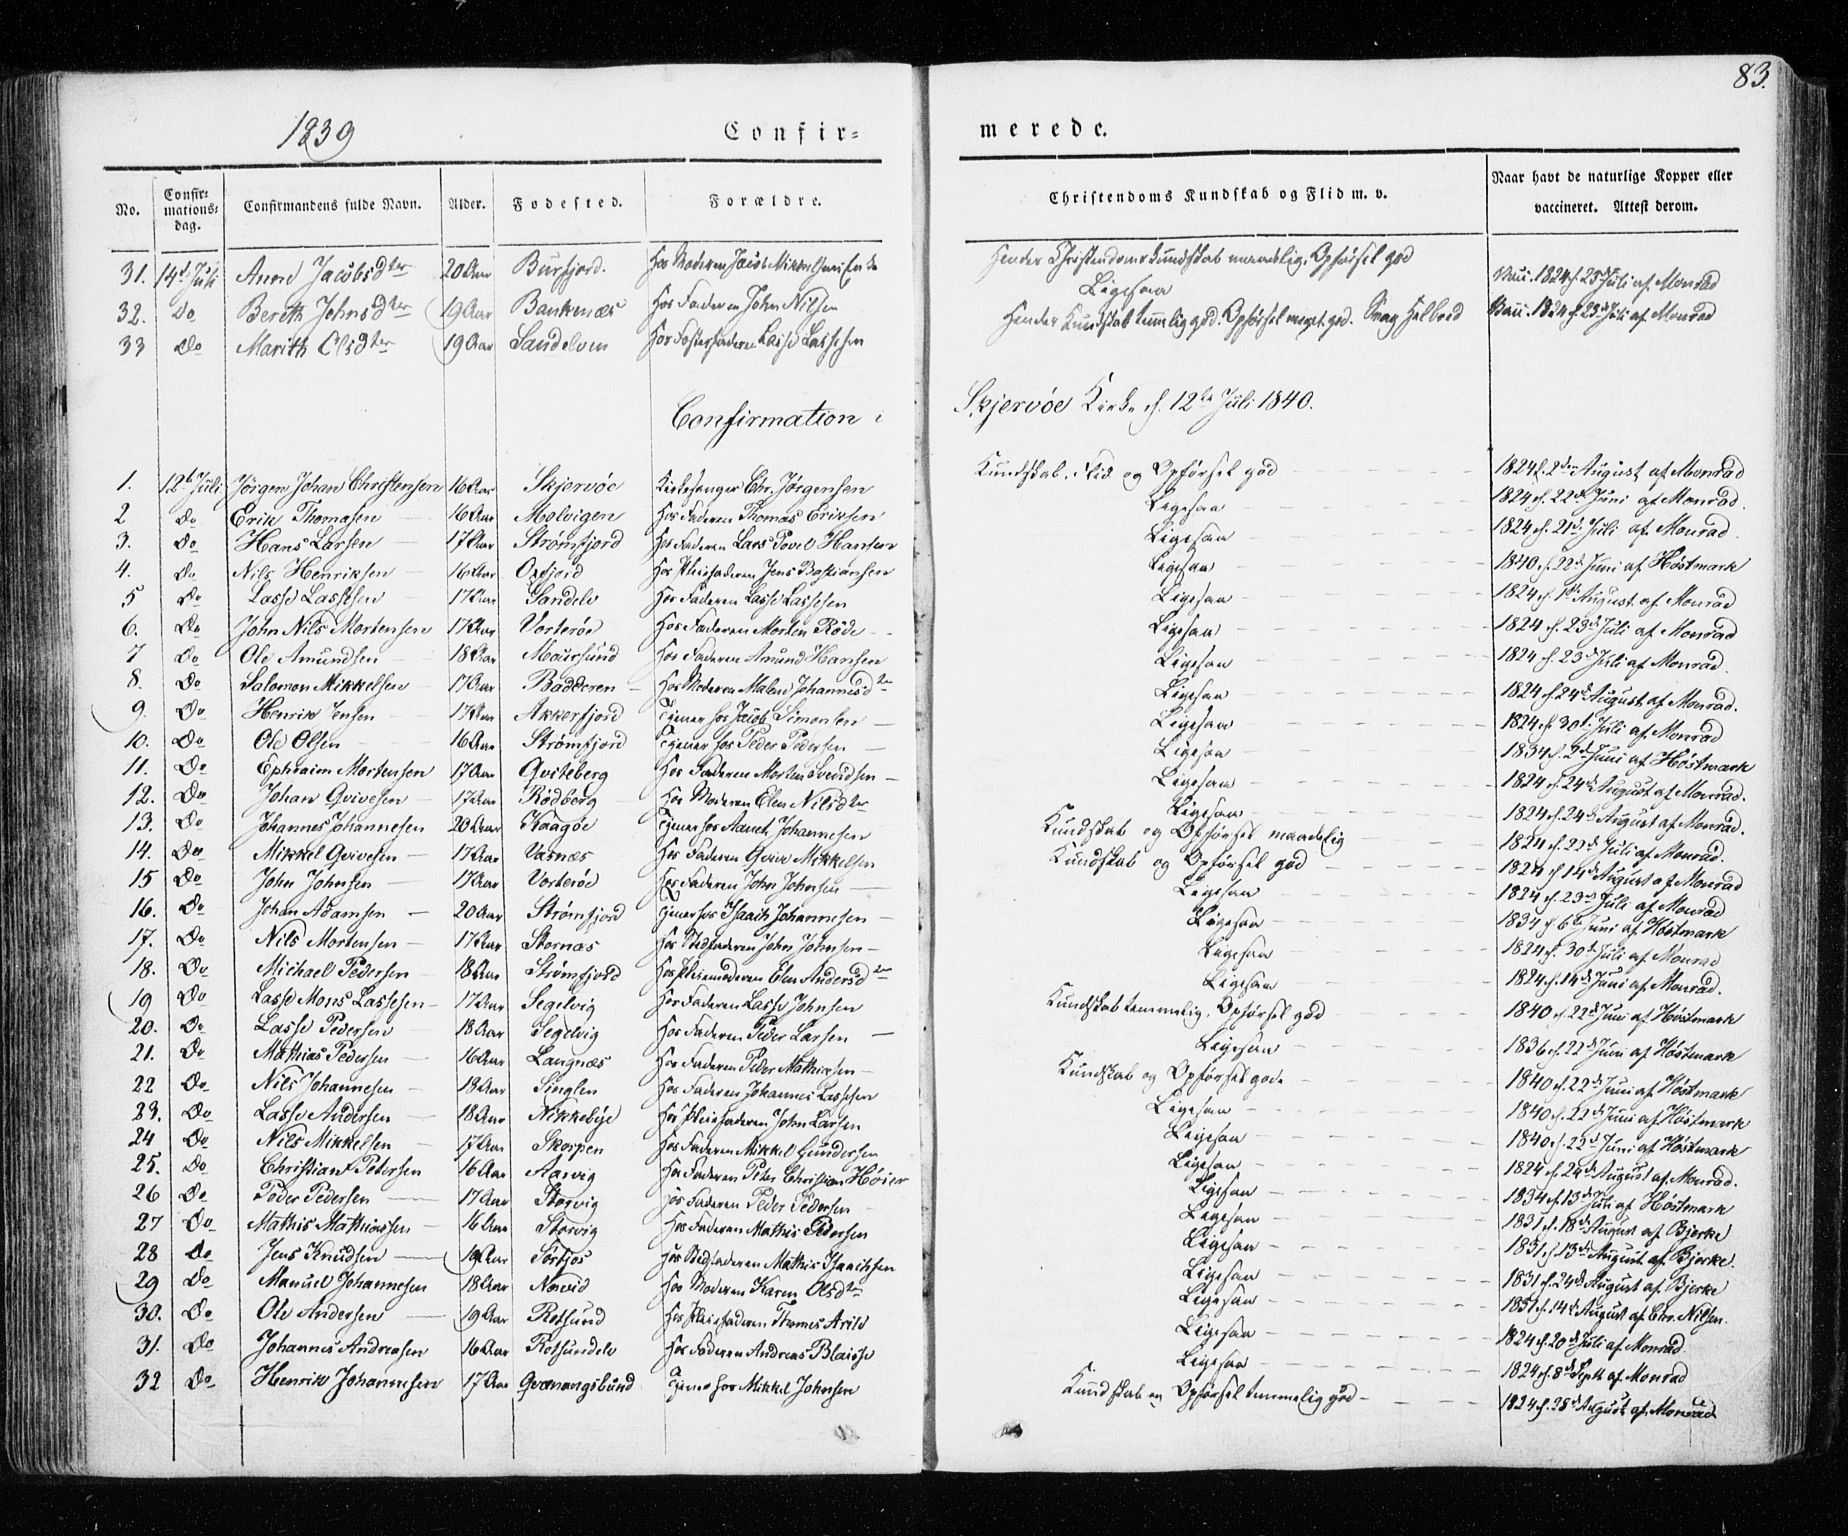 83.
1839 Confir= merede.
No. Confir= mations= dag. Confirmandens fulde Navn. Alder. Fødested. Forældre. Christendoms Kundskab og Flid m. v. Naar havt de naturlige Kopper eller vaccineret. Attest derom.
31. 14de Juli Anne Jacobsdter 20 Aar Burfjord. Hos Moderen Jacob Mikkelsens Enke Hendes Christendoms Kundskab maadelig, Opførsel god Vacc. 1824 d. 23de Juli af Monrad
32. Do Bereth Johnsdter 19 Aar Bankenæs Hos Faderen John Nilsen Ligesaa Vacc. 1824 d. 23de Juli af Monrad
33 Do Marith Olsdter 19 Aar Sandelven Hos Fosterfaderen Lasse Lassesen Hendes Kundskab temmlig god. Opførsel meget god. Svag Helbred
Confirmation i Skjervøe Kirke d. 12te Juli 1840.
1. 12te Juli Jørgen Johan Christensen 16 Aar Skjervøe Kirkesanger Chr. Jørgensen Kundskab, Flid og Opførsel god 1824 d. 2den August af Monrad
2 Do Erik Thomasen 16 Aar Molvigen Hos Faderen Thomas Eriksen Ligesaa 1824 d. 22de Juni af Monrad.
3. Do Hans Larsen 17 Aar Strømfjord Hos Faderen Lars Povel Hansen Ligesaa 1824 d. 21de Juli af Monrad.
4. Do Nils Henriksen 16 Aar Oxfjord Hos Pleiefaderen Jens Bastiansen Ligesaa 1840 d. 22de Juni af Høstmark
5 Do Lasse Lassesen 17 Aar Sandelv Hos Faderen Lasse Lassesen Ligesaa 1824 d. 1ste August af Monrad
6. Do John Nils Mortensen 17 Aar Vorterøe Hos Faderen Morten Røde Ligesaa 1824 d. 23de Juli af Monrad
7 Do Ole Amundsen 18 Aar Maursund Hos Faderen Amund Hansen Ligesaa 1824 d. 23de Juli af Monrad.
8. Do Salomon Mikkelsen 17 Aar Badderen Hos Moderen Malene Johannesdter Ligesaa 1824 d. 24de August af Monrad.
9. Do Henrik Jensen 17 Aar Akkerfjord Tjener hos Jacob Simonsen Ligesaa 1824 d. 30te Juli af Monrad
10. Do Ole Olsen 16 Aar Strømfjord Tjener hos Peder Pedersen Ligesaa 1834 d. 2de Juni af Høstmark
11. Do Ephraim Mortensen 17 Aar Qviteberg Hos Faderen Morten Svendsen Ligesaa 1824 d. 24de August af Monrad.
12. Do Johan Qvivesen 17 Aar Rødberg Hos Moderen Elen Nilsdter Ligesaa 1824 d. 24de August af Monrad.
13. Do Johannes Johannesen 20 Aar Kaagøe Tjener hos Johannesen Kundskab og Opførsel maadelig 1824 d. 22de Juli af Monrad.
14. Do Mikkel Qvivesen 17 Aar Vasnæs Hos Faderen Qvive Mikkelsen Kundskab og Opførsel god 1824 d. 14de August af Monrad
15 Do John Johnsen 17 Aar Vorterøe Hos Faderen John Johnsen Ligesaa 1824 d. 23de Juli af Monrad
16. Do Johan Adamsen 20 Aar Strømfjord Tjener hos Isaach Johannesen Ligesaa 1834 d. 6te Juni af Høstmark
17. Do Nils Mortensen 17 Aar Stornæs Hos Stedfaderen John Johnsen Ligesaa 1824 d. 30te Juli af Monrad
18. Do Michael Pedersen 18 Aar Strømfjord Hos Pleiemoderen Elen Andersdter Ligesaa 1824 d. 14de Juni af Monrad.
19 Do Lasse Mons Lassesen 17 Aar Segelvig Hos Faderen Lasse Johnsen Kundskab temmelig, Opførsel god 1840 d. 22de Juni af Høstmark
20. Do Lasse Pedersen 18 Aar Segelvig Hos Faderen Peder Larsen Ligesaa 1836 d. 22de Juni af Høstmark
21. Do Mathias Pedersen 16 Aar Langnæs Hos Faderen Peder Mathiesen Kundskab og Opførsel gode 1840 d. 22de Juni af Høstmark
22 Do Nils Johannesen 18 Aar Singlen Hos Faderen Johannes Lassesen Ligesaa 1840 d. 22de Juni af Høstmark
23. Do Lasse Andersen 18 Aar Nikkebye Hos Pleiefaderen John Larsen Ligesaa 1840 d. 22de Juni af Høstmark
24 Do Nils Mikkelsen 17 Aar Skorpen Hos Faderen Mikkel Gundersen Ligesaa 1824 d. 24de August af Monrad.
25. Do Christian Petersen 16 Aar Aarvig Hos Faderen Peter Christian Høier Ligesaa 1834 d. 13de Juli af Høstmark
26 Do Peder Pedersen 17 Aar Storvig Hos Faderen Peder Pedersen Ligesaa 1831 d. 18de August af Bjerke
27 Do Mathis Mathiassen 16 Aar Storvig Hos Faderen Mathis Pedersen Ligesaa 1831 d. 13de August af Bjerke.
28 Do Jens Knudsen 19 Aar Sørfjos Hos Stedfaderen Mathis Isaachsen Ligesaa 1831 d. 24de August af Bjerke
29 Do Manuel Johannesen 18 Aar Hos Moderen Karen Olsdter Ligesaa 1831 d. 14de August af Chr. Nilsen.
30. Do Ole Andersen 19 Aar Rotsund Hos Pleiefaderen Thomas Arild Ligesaa 1824 d. 20de Juli af Monrad.
31. Do Johannes Andreasen 16 Aar Rotsundelv Hos Faderen Andreas Blaisse Ligesaa 1824 d. 8de Septb af Monrad
32 Do Henrik Johannesen 17 Aar Qvænangsbund Tjener hos Mikkel Johnsen Kundskab og Opførsel temmelig god 1824 d. 28de August af Monrad